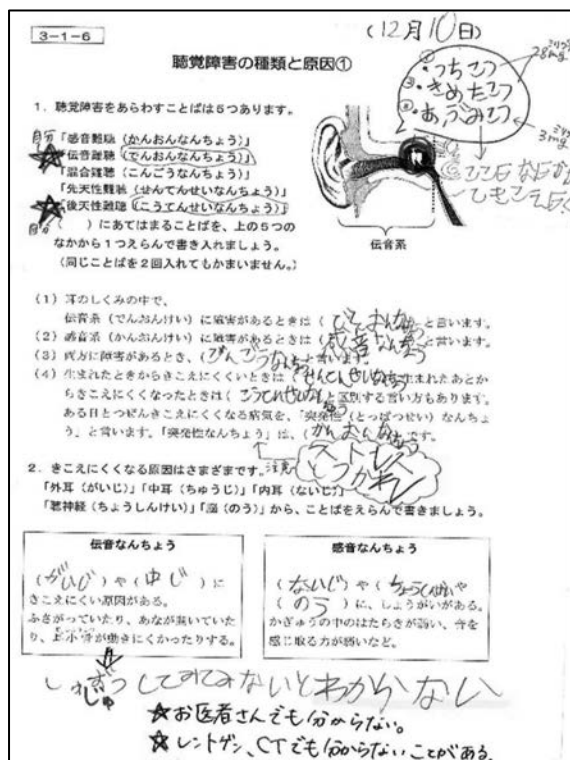 3-1-6
(12月10日)
聴覚障害の種類と原因①
①・つちこつ
③・きぬたこつ
②・あぶみこつ
28mg
3mg
1．聴覚障害をあらわすことばは5つあります。
自分
「感音難聴（かんおんなんちょう）」
★「伝音難聴（でんおんなんちょう）」
「混合難聴（こんごうなんちょう）」
「先天性難聴（せんてんせいなんちょう）」
★「後天性難聴（こうてんせいなんちょう）」
自分
（　　）にあてはまることばを、上の5つの
なかから1つえらんで書き入れましょう。
（同じことばを2回入れてもかまいません。）
伝音系
（1）耳のしくみの中で、
伝音系（でんおんけい）に障害があるときは（でんおんなんちょうと言います。
（2）感音系（かんおんけい）に障害があるときは（感音なんちょうと言います。
（3）両方に障害があるとき、（こんごうなんちょうと言います。
（4）生まれたときからきこえにくいときは（せんてんせいなんちょう 生まれたあとか
らきこえにくくなったときは（こうてんせいなんと区別する言い方もあります。
ある日とつぜんきこえにくくなる病気を、「突発性（とっぱつせい）なんちょ
う」と言います。「突発性なんちょう」は、（かんおんなんちょうです。
注意
ストレス
とつかれ
2．きこえにくくなる原因はさまざまです。
「外耳（がいじ）」「中耳（ちゅうじ）」「内耳（ないじ）」
「聴神経（ちょうしんけい）」「脳（のう）」から、ことばをえらんで書きましょう。
伝音なんちょう
（がいじ）や（中じ）に
きこえにくい原因がある。
ふさがっていたり、あなが開いていた
り、耳小骨が動きにくかったりする。
感音なんちょう
（ないじ）や（ちょうしんけいや
（のう）に、しょうがいがある。
かぎゅうの中のはたらきが弱い、音を
感じ取る力が弱いなど。
してみないとわからない
★お医者さんでも分からない。
★レントゲン、CTでも分からないことがある。